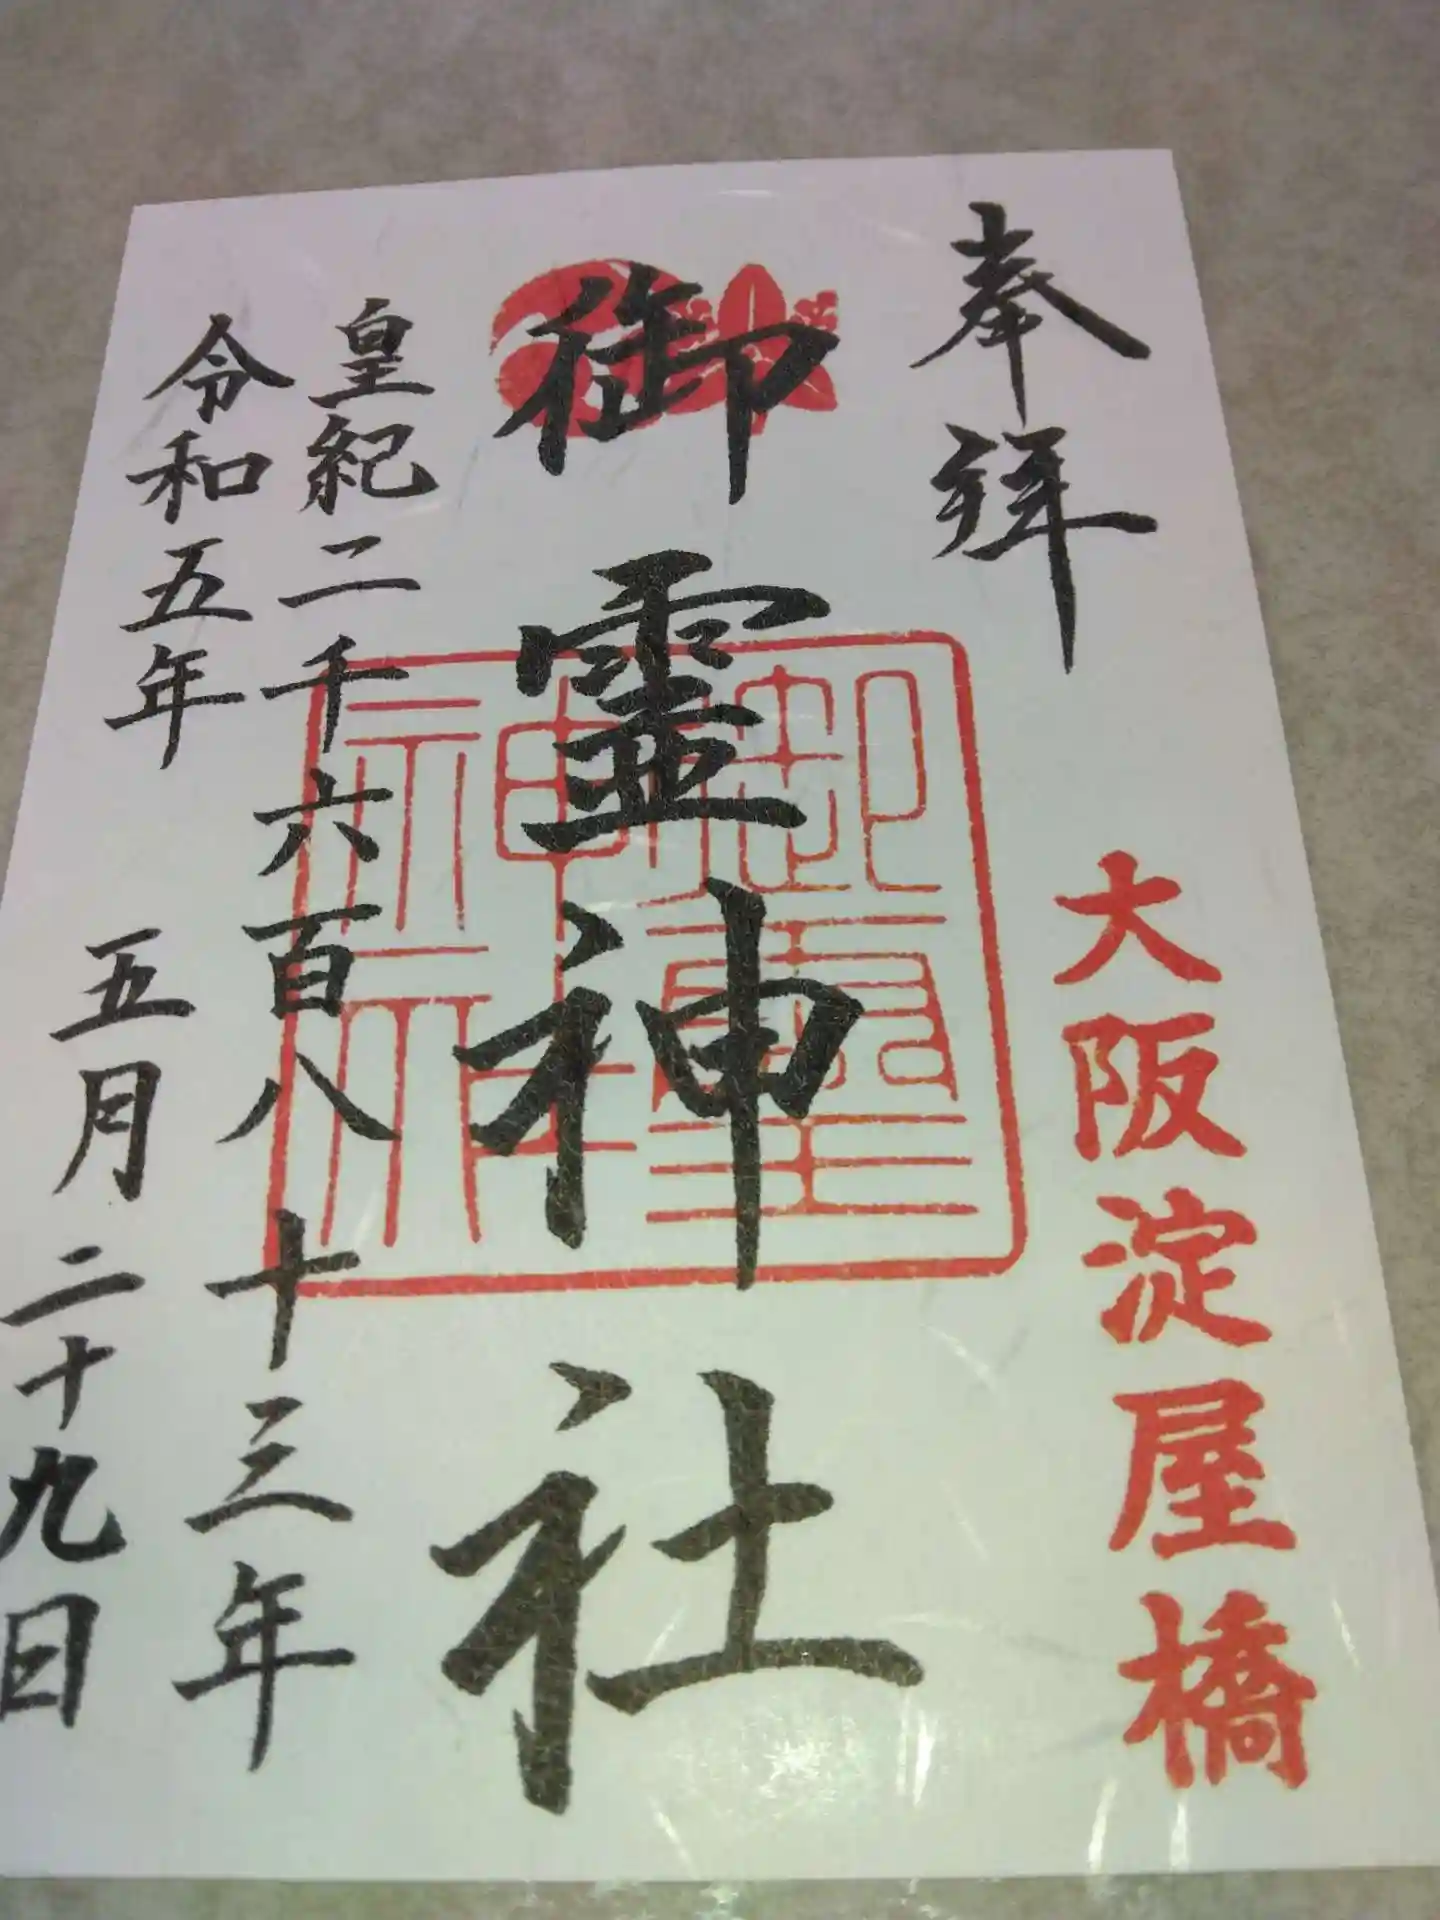 奉拜
大阪淀屋橋
御靈神社
御靈神社
皇紀二千六百八十三年
令和五年 五月二十九日